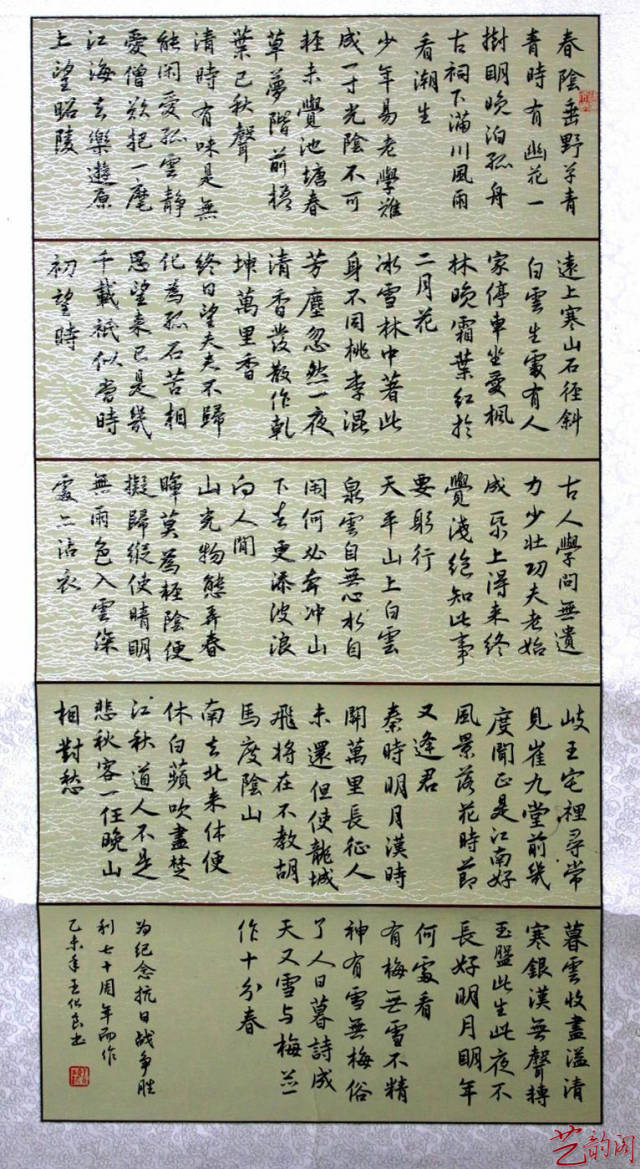 春陰垂野草青
青時有幽花一
樹明晚泊孤舟
古祠下滿川風雨
看潮生
少年易老學難
成一寸光陰不可
輕未覺池塘春
草夢階前梧
葉已秋聲
清時有味是無
能閑愛孤雲靜
愛僧欲把一麾
江海去樂遊原
上望昭陵
遠上寒山石徑斜
白雲生處有人
家停車坐愛楓
林晚霜葉紅於
二月花
冰雪林中著此
身不同桃李混
芳塵忽然一夜
清香發散作乾
坤萬里香
終日望夫夫不歸
化為孤石苦相
思望來已是幾
千載祇似當時
初望時
古人學問無遺
力少壯功夫老始
成紙上得來終
覺淺絕知此事
要躬行
天平山上白雲
泉雲自無心水自
閑何必奔冲山
下去更添波浪
向人間
山光物態弄春
暉莫為輕陰便
擬歸縱使晴明
無雨色入雲深
處亦沾衣
岐王宅裡尋常
見崔九堂前幾
度聞正是江南好
風景落花時節
又逢君
秦時明月漢時
關萬里長征人
未還但使龍城
飛將在不教胡
馬度陰山
南去北來休便
休白蘋吹盡楚
江秋道人不是
悲秋客一任晚山
相對愁
暮雲收盡溢清
寒銀漢無聲轉
玉盤此生此夜不
長好明月明年
何處看
有梅無雪不精
神有雪無梅俗
了人日暮詩成
天又雪与梅並
作十分春
为纪念抗日战争胜
利七十周年而作
乙未年王书
艺韵阁